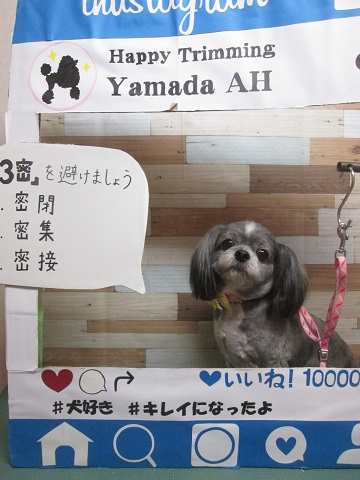 Happy Trimming
Yamada AH
3密』を避けましょう
. 密閉
. 密集
. 密接
いいね! 10000
#犬好き #キレイになったよ